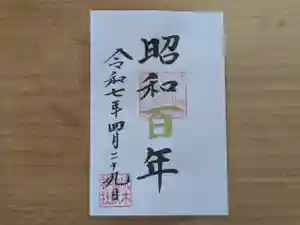 昭和百年
令和七年四月二十九日